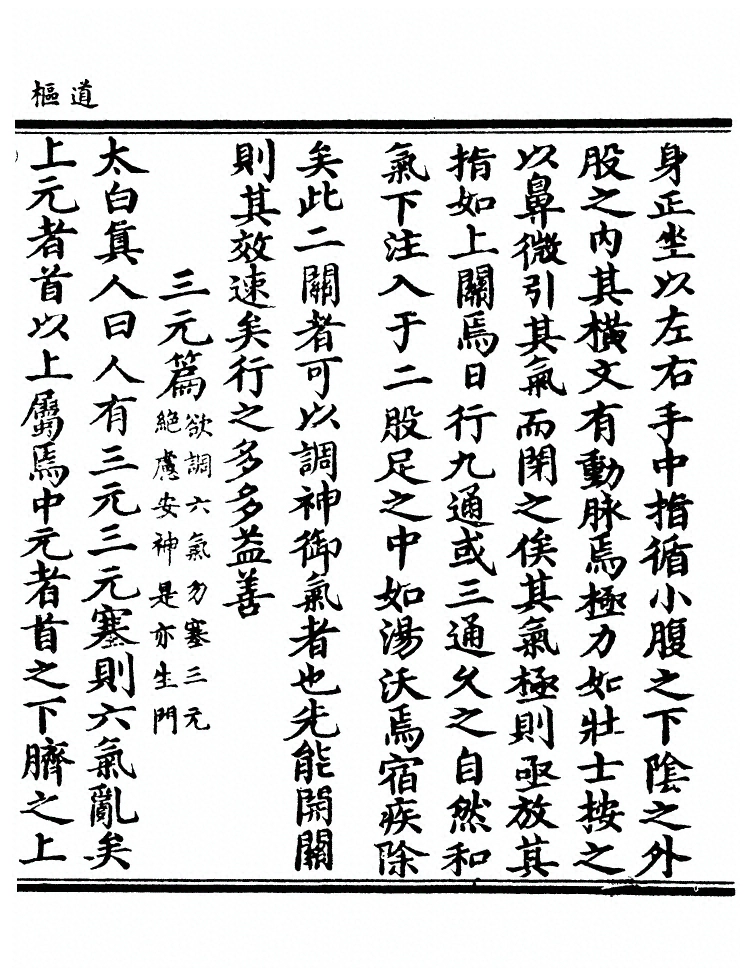 道樞
身正坐以左右手中指循小腹之下陰之外
股之內其橫文有動脉焉極力如壯士按之
以鼻微引其氣而閉之俟其氣極則亟放其
指如上關焉日行九通或三通久之自然和
氣下注入于二股足之中如湯沃焉宿疾除
矣此二關者可以調神御氣者也先能開關
則其效速矣行之多多益善
三元篇欲調六氣勿塞三元
絕慮安神是亦生門
太白眞人曰人有三元三元塞則六氣亂矣
上元者首以上屬焉中元者首之下臍之上